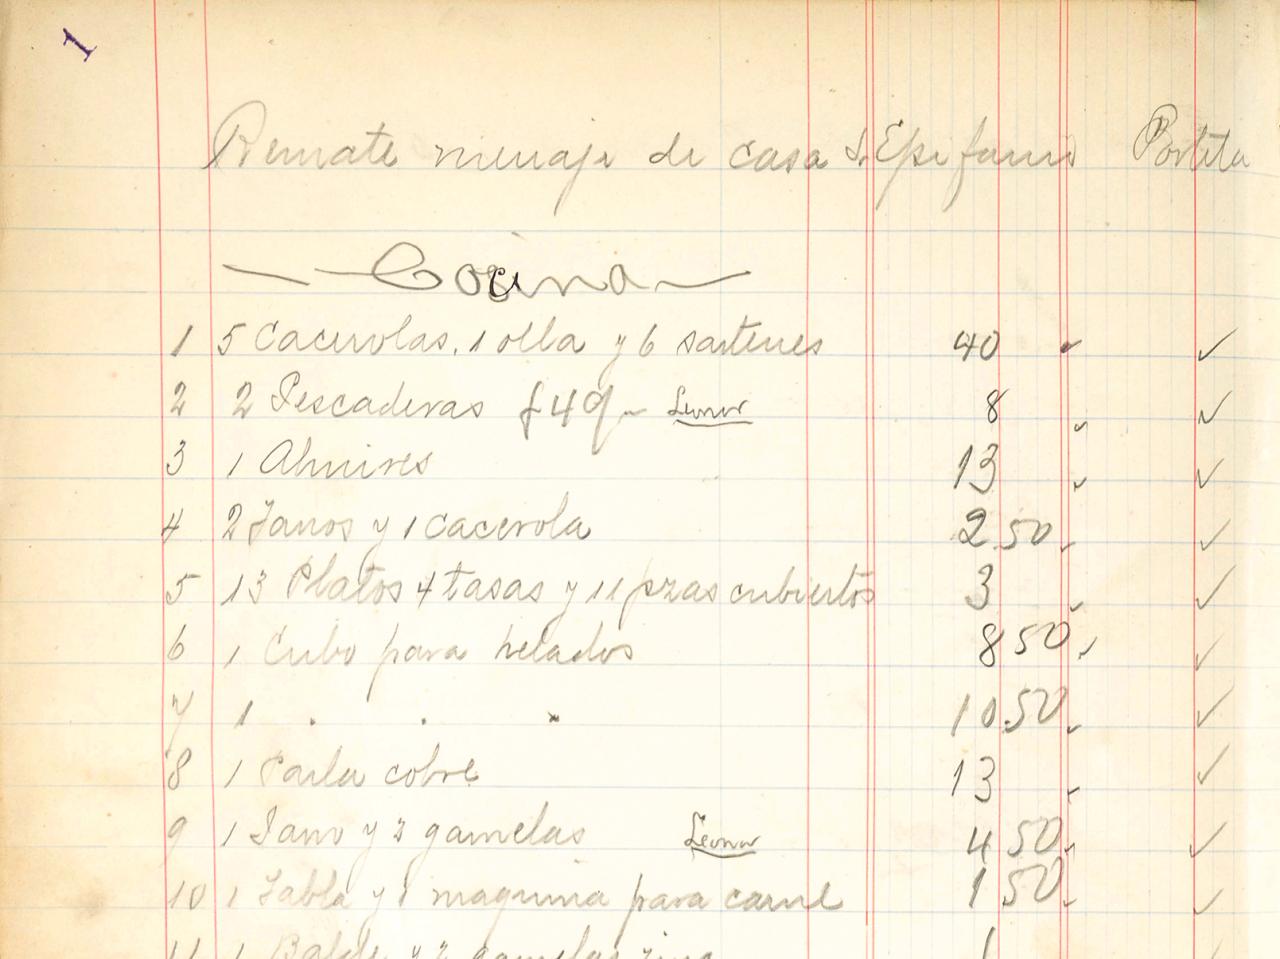 1
Remate menaje de casa S. Epifanio Portita
Cocina
1 5 Cacerolas, 1 olla y 6 sartenes 40 "
2 2 Pescaderas £49 - Leonor 8 "
3 1 Almires 13 "
4 2 Jarros y 1 cacerola 2 50 "
5 13 Platos 4 tasas y 11 pzas cubiertos 3 "
6 1 Cubo para helados 8 50 "
7 1 " " " 10.50 "
8 1 Paila cobre 13 "
9 1 Jarro y 2 gamelas Leonor 4 50 "
10 1 Tabla y 1 maquina para carne 1 50 "
11 1 Balde y 2 gamelas zinc 1